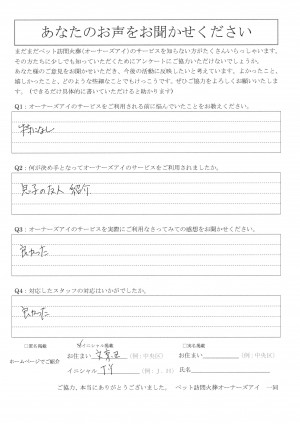 あなたのお声をお聞かせください
まだまだペット訪問火葬(オーナーズアイ)のサービスを知らない方がたくさんいらっしゃいます。
その方たちに少しでも知っていただくためにアンケートにご協力いただけないでしょうか。
あなた様のご意見をお聞かせいただき、今後の活動に反映したいと考えています。よかったこと、
嬉しかったこと、どのような些細なことでもけっこうです。ぜひご協力をよろしくお願いいたしま
す。(できるだけ具体的に書いていただけると助かります)
Q1:オーナーズアイのサービスをご利用される前に悩んでいたことをお教えください。
特になし
Q2:何が決め手となってオーナーズアイのサービスをご利用されましたか。
息子の友人 紹介
Q3:オーナーズアイのサービスを実際にご利用なさってみての感想をお聞かせください。
良かった
Q4:対応したスタッフの対応はいかがでしたか。
良かった
□匿名掲載 イニシャル掲載 □実名掲載
ホームページでご紹介
お住まい (例:中央区) お住まい (例:中央区)
イニシャル (例:J.H) 氏名
ご協力、本当にありがとうございました。 ペット訪問火葬オーナーズアイ 一同